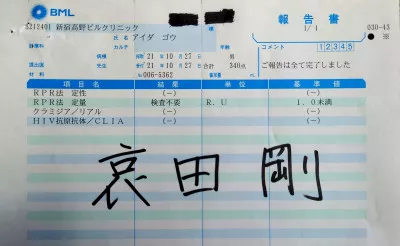 BML
報告書
221240| 新宿高野ビルクリニック 様 1/ 1 030-43
氏名 アイダ ゴウ コメント 12345
診療科 カルテ
病棟 採取 21年10月27日 男
提出医 受付 21年10月27日 合計 340点 ご報告は全て完了しました
材料 No 006-5362
項目名 結果 単位 基準値
RPR法 定性 (-) (-)
RPR法 定量 検査不要 R.U 1.0未満
クラミジア/リアル (-) (-)
HIV抗原抗体/CLIA (-) (-)
哀田剛